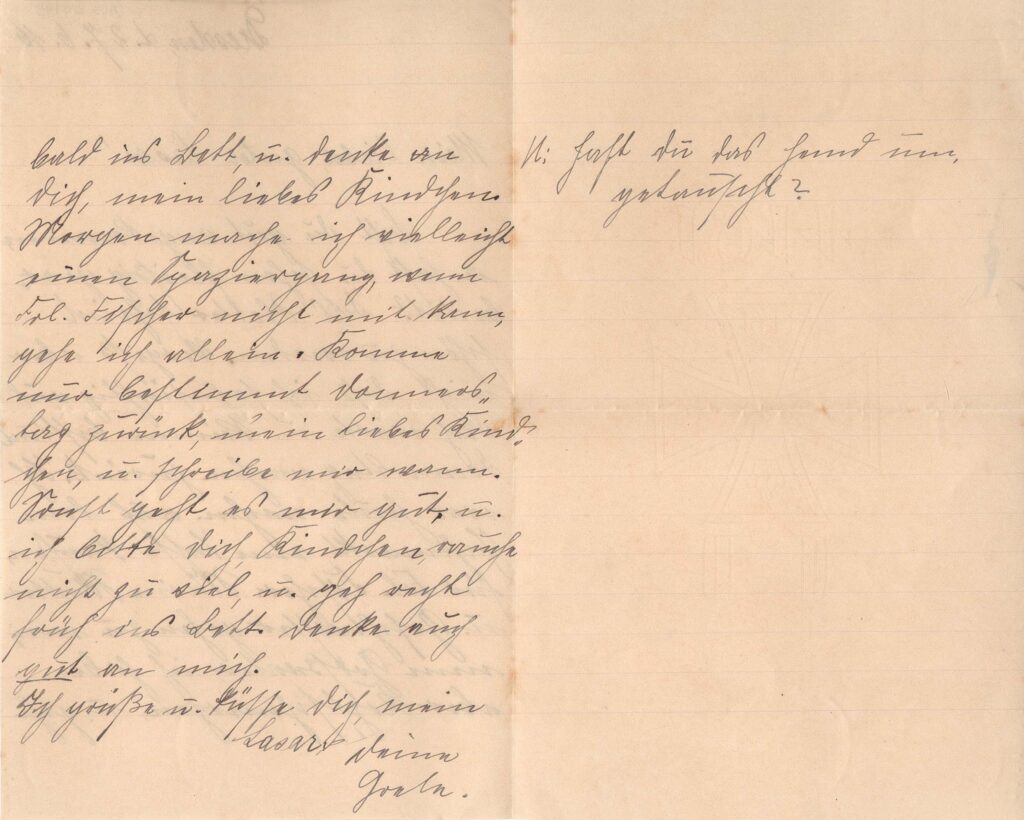 bald ins Bett, u. denke an
Dich, mein liebes Kindchen.
Morgen mache ich vielleicht
einen Spaziergang, wenn
Frl. Fischer nicht mit kann,
gehe ich allein. Komme
nur bestimmt Donners-
tag zurück, mein liebes Kind-
chen, u. schreibe mir wann.
Sonst geht es mir gut, u.
ich bitte Dich, Kindchen, rauche
nicht zu viel, u. geh recht
früh ins Bett. Denke auch
gut an mich.
Ich grüße u. küsse Dich, mein
Lasar, Deine
Grete.
N: Hast Du das Hemd um-
getauscht?